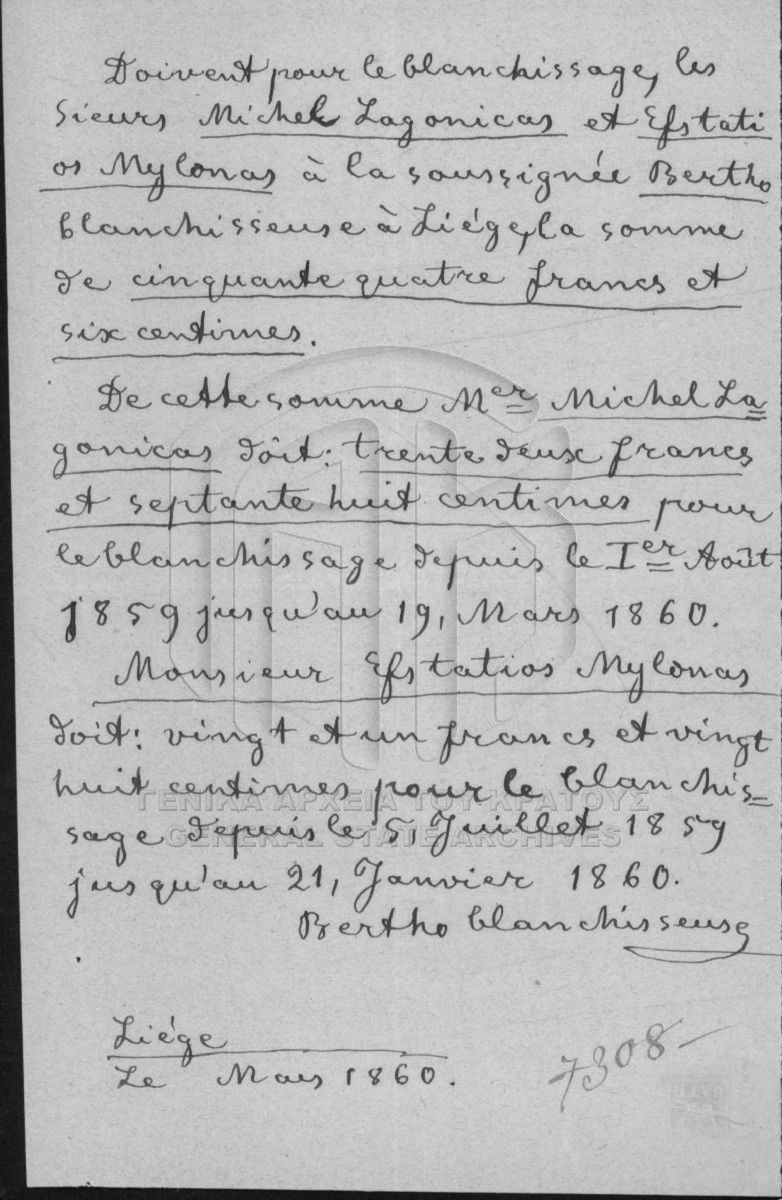 Doivent pour le blanchissage, les
Sieurs Michel Lagonicas et Efstati
os Mylonas à la soussignée Bertho
blanchisseuse à Liége, la somme
de cinquante quatre francs et
six centimes.
De cette somme Mer Michel La=
gonicas dôit: trente deux francs
et septante huit centimes pour
le blanchissage depuis le Ier Août
1859 jusqu'au 19, Mars 1860.
Monsieur Efstatios Mylonas
doit: vingt et un francs et vingt
huit centimes pour le blanchis=
ΓΕΝΙΚΑ ΑΡΧΕΙΑ ΤΟΥ ΚΡΑΤΟΥΣ
sage depuis le 5, Juillet 1859
GENERAL STATE ARCHIVES
jusqu'au 21, Janvier 1860.
Bertho blanchisseuse
Liége
Le Mars 1860.
7308